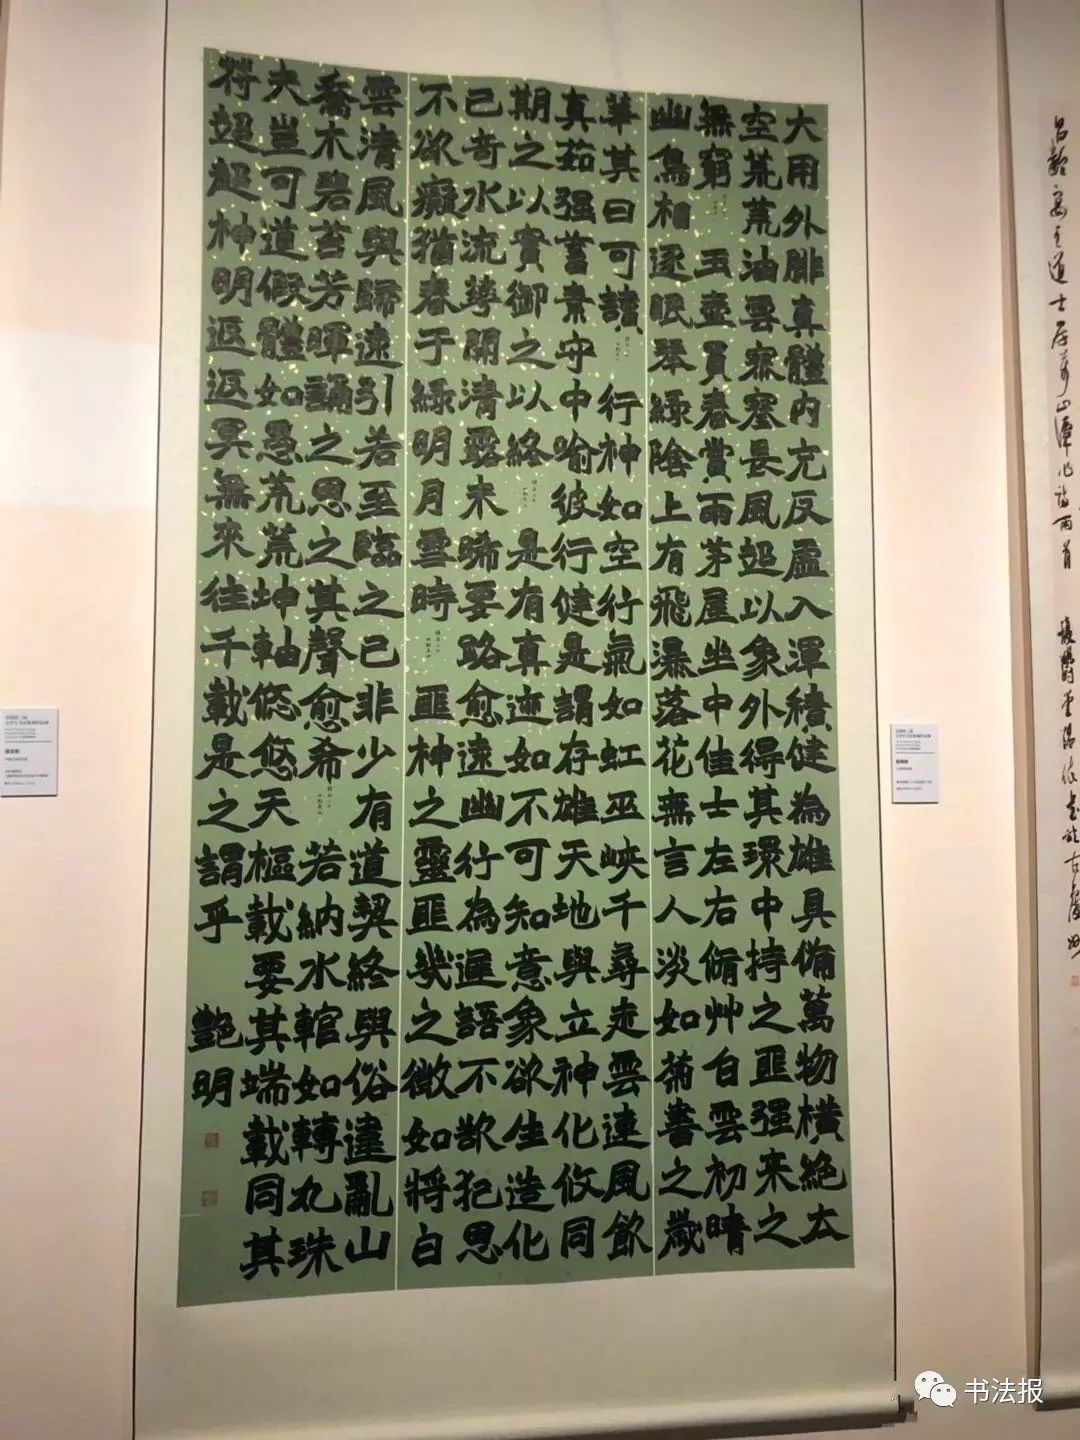 大用外腓真體内充反虛入渾積健為雄具備萬物橫絕太
空荒荒油雲寥寥長風超以象外得其環中持之匪强来之
無窮 玉壺買春賞雨茅屋坐中佳士左右脩竹白雲初晴
幽鳥相逐眠琴綠陰上有飛瀑落花無言人淡如菊書之歲
華其曰可讀 行神如空行氣如虹巫峽千尋走雲連風飲
真茹强蓄素守中喻彼行健是謂存雄天地與立神化攸同
期之以實御之以終 是有真迹如不可知意象欲生造化
已奇水流華開清露未晞要路愈遠幽行為遲語不欲犯思
不欲癡猶春于綠明月雪時 匪神之靈匪幾之微如將白
雲清風與歸遠引若至臨之已非少有道契終與俗違亂山
喬木碧苔芳暉誦之思之其聲愈希 若納水輨如轉丸珠
夫豈可道假體如愚荒荒坤軸悠悠天樞載要其端載同其
符超超神明返返冥無來往千載是之謂乎 艷明
书法报